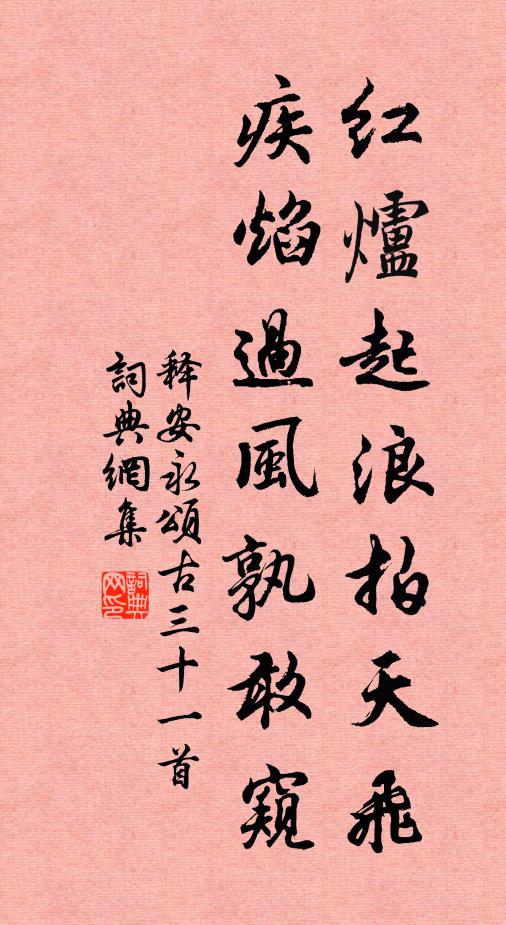 红爐起浪拍天飛
疾焰過風孰敢窺
释安永頌古三十一首
詞典網集
詞典网印